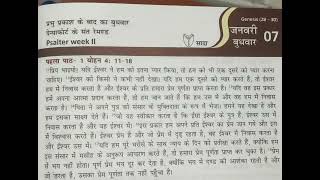 प्रभु प्रकाश के बाद का बुधवार
पेन्याफोर्ट के संत रेमण्ड
Psalter week II
सादा
Genesis (28 - 30)
जनवरी
बुधवार
07
पहला पाठ- 1 योहन 4: 11-18
"प्रिय भाइयो! यदि ईश्वर ने हम को इतना प्यार किया, तो हम को भी एक दूसरे को प्यार करना
चाहिए। ईश्वर को किसी ने कभी नहीं देखा। यदि हम एक दूसरे को प्यार करते हैं, तो ईश्वर
हम में निवास करता है और ईश्वर के प्रति हमारा प्रेम पूर्णता प्राप्त करता है। यदि वह इस प्रकार
हमें अपना आत्मा प्रदान करता है, तो हम जान जाते हैं कि हम उस में और वह हम में निवास
करता है। पिता ने अपने पुत्र को संसार के मुक्तिदाता के रूप में भेजा। हमने यह देखा है और
हम इसका साक्ष्य देते हैं। जो यह स्वीकार करता है कि ईसा ईश्वर के पुत्र हैं, ईश्वर उस में
निवास करता है और वह ईश्वर में। इस प्रकार हम अपने प्रति ईश्वर का प्रेम जान गये और इस में
विश्वास करते हैं। ईश्वर प्रेम है और जो प्रेम में दृढ़ रहता है, वह ईश्वर में निवास करता है
और ईश्वर उस में। यदि हम पूरे भरोसे के साथ न्याय के दिन की प्रतीक्षा करते हैं, क्योंकि हम
इस संसार में मसीह के अनुरूप आचरण करते हैं, तो हमारा प्रेम पूर्णता प्राप्त कर चुका है। प्रेम
में भय नहीं होता। पूर्ण प्रेम भय दूर कर देता है, क्योंकि भय में दण्ड की आशंका रहती है और
जो डरता है, उसका प्रेम पूर्णता तक नहीं पहुँचा है।